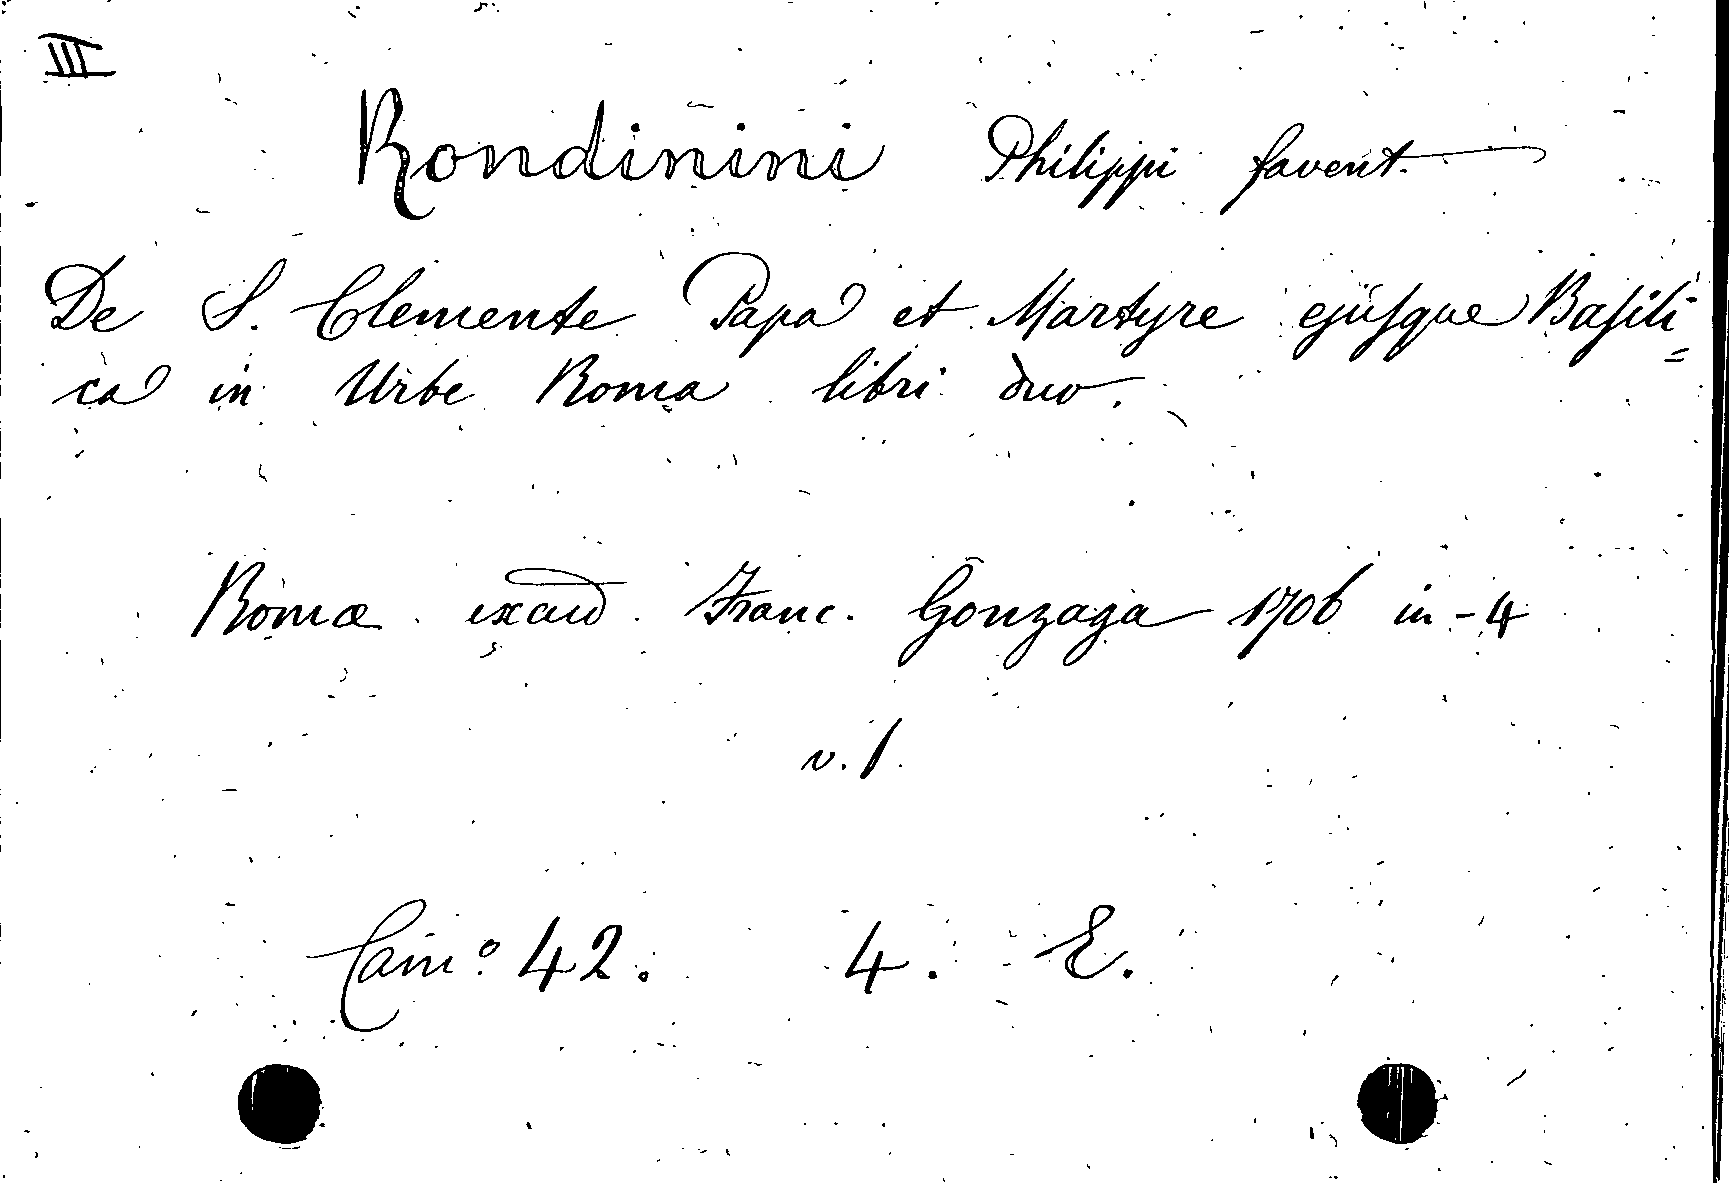 III
Rondinini Philippi favent.
De S. Clemente Papa et Martyre ejusque Basili=
ca in Urbe Roma libri duo.
Romæ excud Franc. Gonzaga 1706 in-4
v. 1.
Cam.º 42. 4. E.